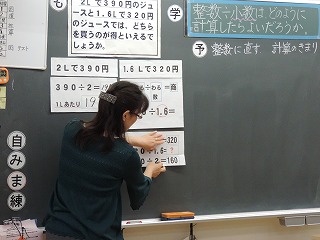 2Lで390円のジュー
スと1.6Lで320円
のジュースでは、どち
らを買うのが得といえるで
しょうか。
学
整数÷小数は、どのように
計算したらよいだろうか。
予 整数に直す 計算のきまり
2Lで390円
1.6Lで320円
390÷2=19
1Lあたり19
=商
数
÷1.6=
=320
÷1.6=?
0÷2=160
自
み
ま
練